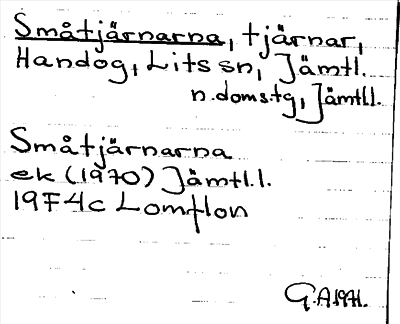 Småtjärnarna, tjärnar,
Handog, Lits sn, Jämtl.
n. domstg, Jämtl.l.
Småtjärnarna
ek (1970) Jämtl.l.
19F4c Lomflon
G.A. 1971.